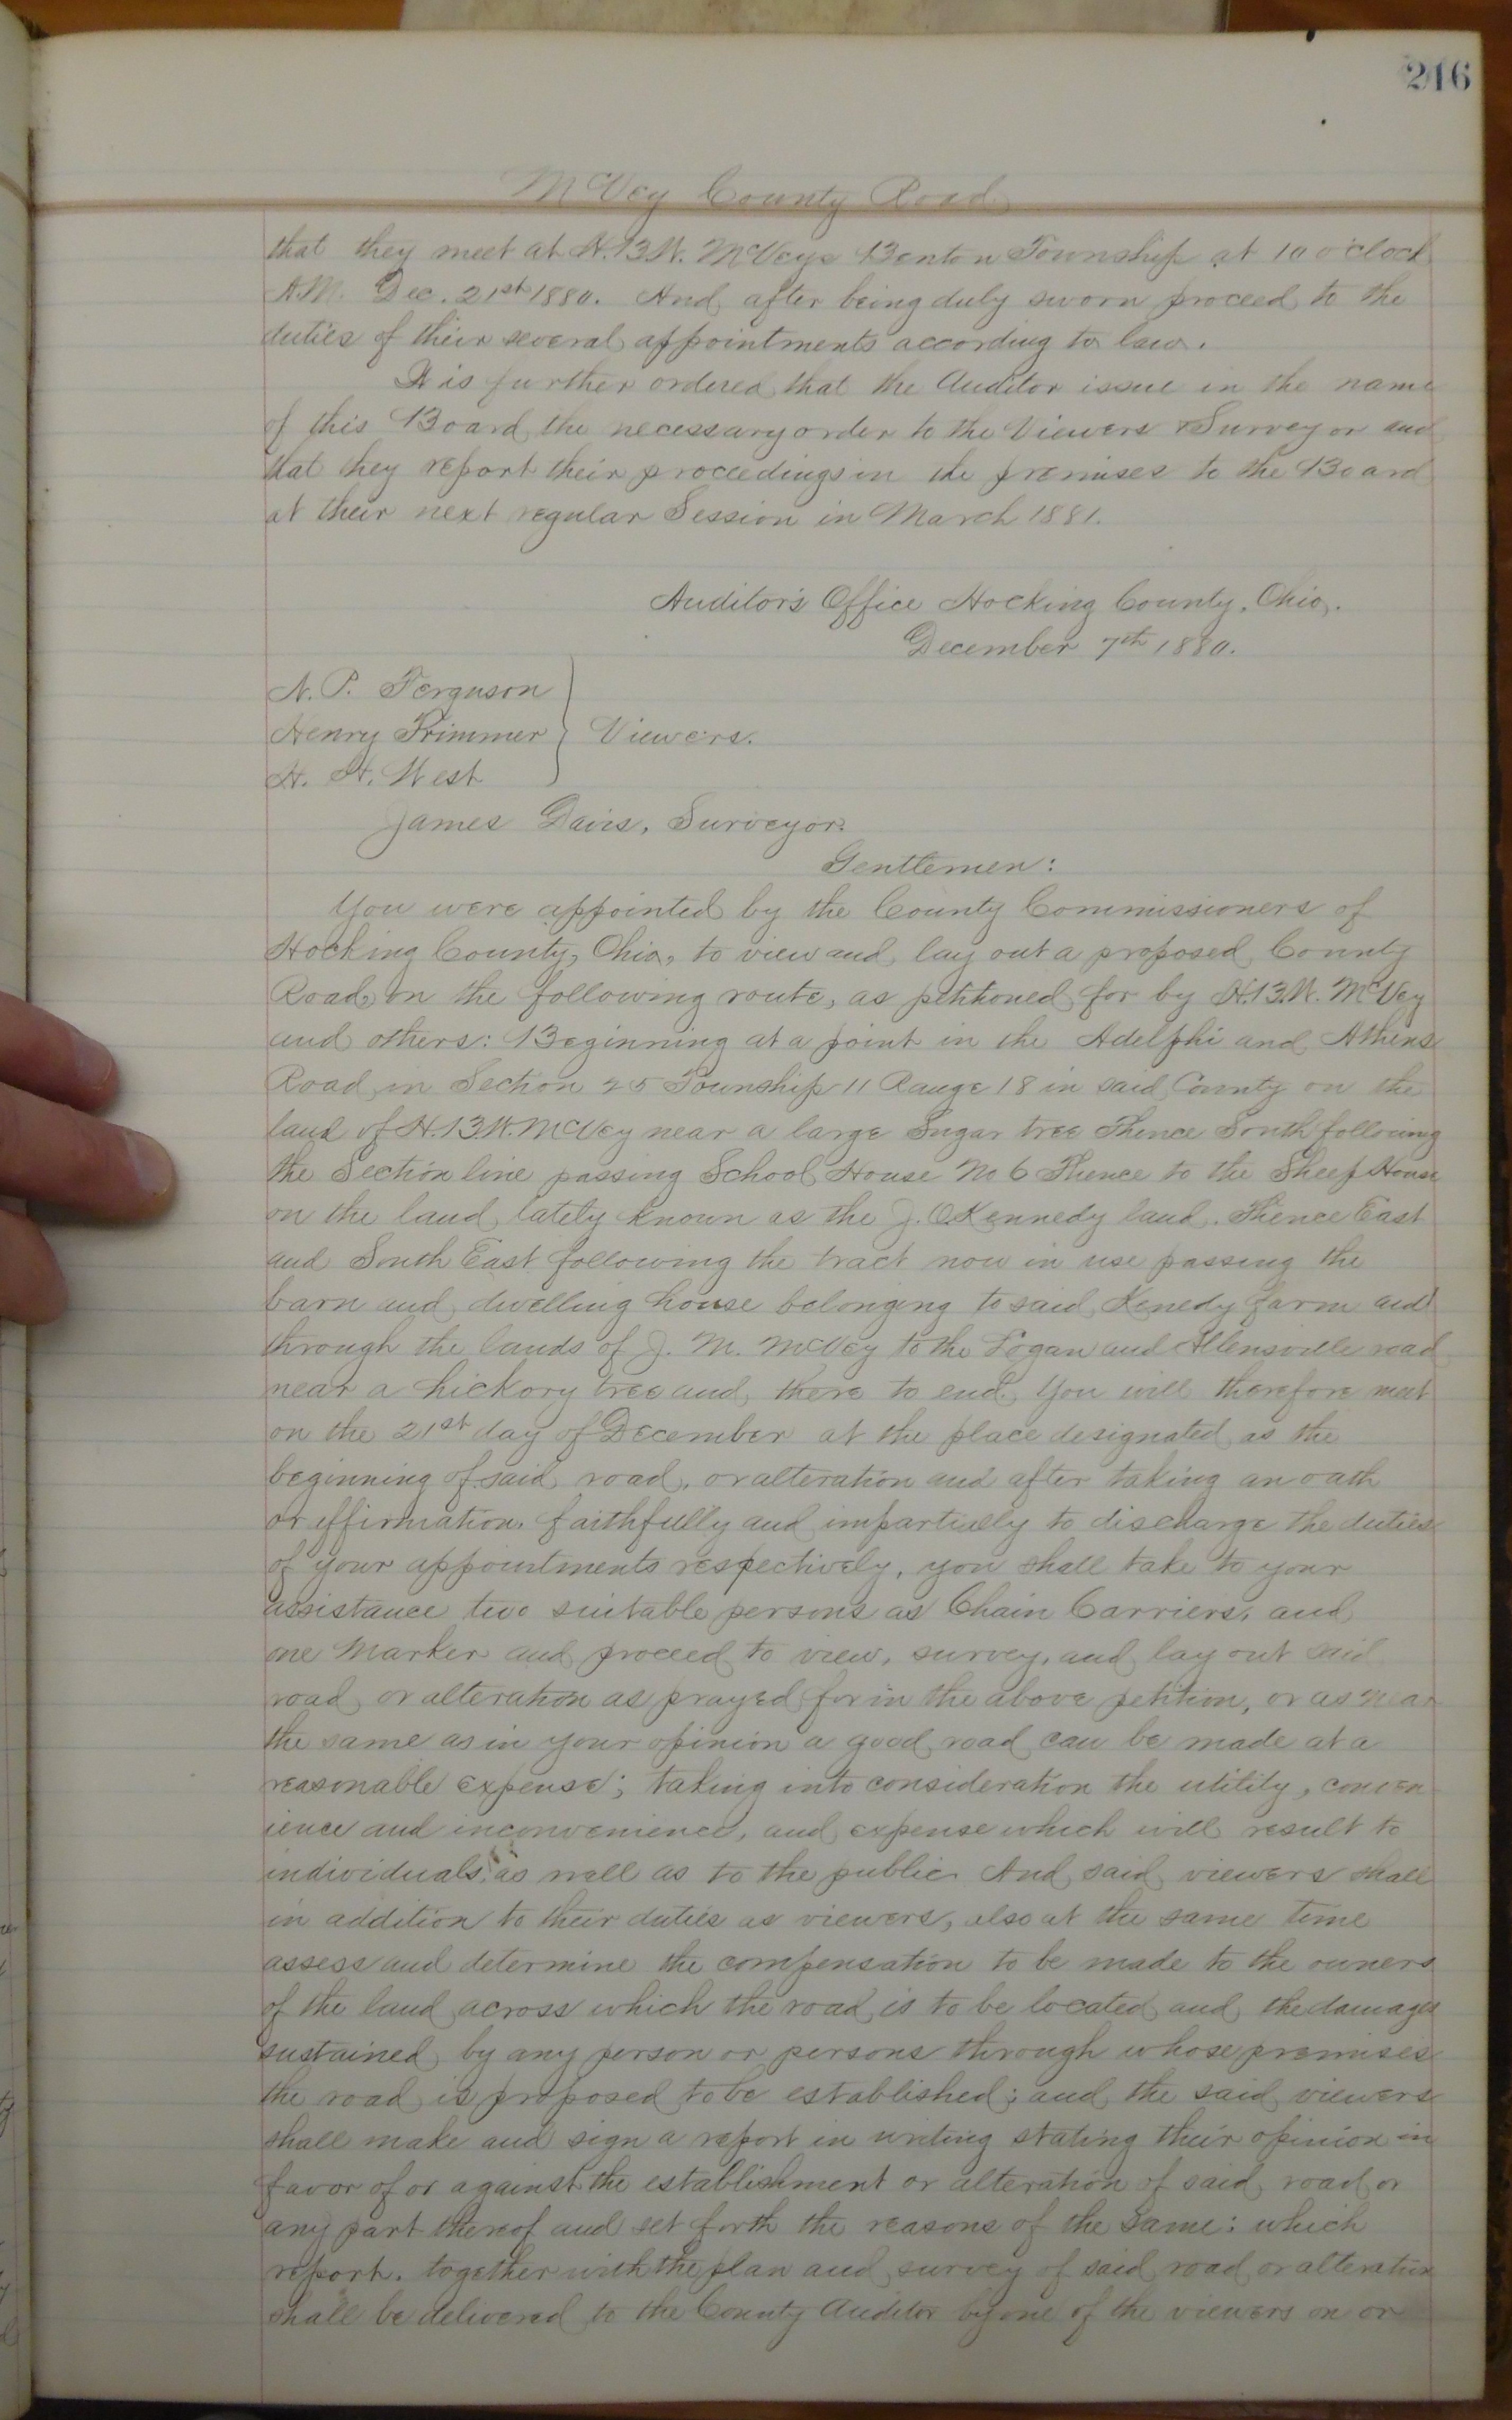 216
McVey County Road
that they meet at H.B.W. McVeys Benton Township at 10 o'clock
A.M. Dec. 21st 1880. And after being duly sworn proceed to the
duties of their several appointments according to law.
It is further ordered that the Auditor issue in the name
of this Board the necessary order to the Viewers & Surveyor and
that they report their proceedings in the premises to the Board
at their next regular Session in March 1881.
Auditor's Office Hocking County, Ohio,.
December 7th 1880.
N. P. Ferguson
Henry Trimmer } Viewers.
H. H. West
James Davis, Surveyor.
Gentlemen:
You were appointed by the County Commissioners of
Hocking County, Ohio, to view and lay out a proposed County
Road, on the following route, as petitioned for by H.B.W. McVey
and others: Beginning at a point in the Adelphi and Athens
Road in Section 25 Township 11 Range 18 in said County on the
land of H.B.W. McVey near a large Sugar tree Thence South following
the Section line passing School House No 6 Thence to the Sheep House
on the land lately known as the J. O.Kennedy land. Thence East
and South East following the tract now in use passing the
barn and dwelling house belonging to said Kenedy farm and
through the lands of J. M. McVey to the Logan and Allensville road
near a hickory tree and there to end. You will therefore meet
on the 21st day of December at the place designated as the
beginning of said road, or alteration and after taking an oath
or affirmation. faithfully and impartially to discharge the duties
of your appointments respectively, you shall take to your
assistance two suitable persons as Chain Carriers, and
one Marker and proceed to view, survey, and lay out said
road or alteration as prayed for in the above petition, or as near
the same as in your opinion a good road can be made at a
reasonable expense; taking into consideration the utility, conven-
ience and inconvenience, and expense which will result to
individuals, as well as to the public. And said viewers shall
in addition to their duties as viewers, also at the same time
assess and determine the compensation to be made to the owners
of the land across which the road is to be located and the damages
sustained by any person or persons through whose premises
the road is proposed to be established; and the said viewers
shall make and sign a report in writing stating their opinion in
favor of or against the establishment or alteration of said road or
any part thereof and set forth the reasons of the same: which
report. together with the plan and survey of said road or alteration
shall be delivered to the County Auditor by one of the viewers on or